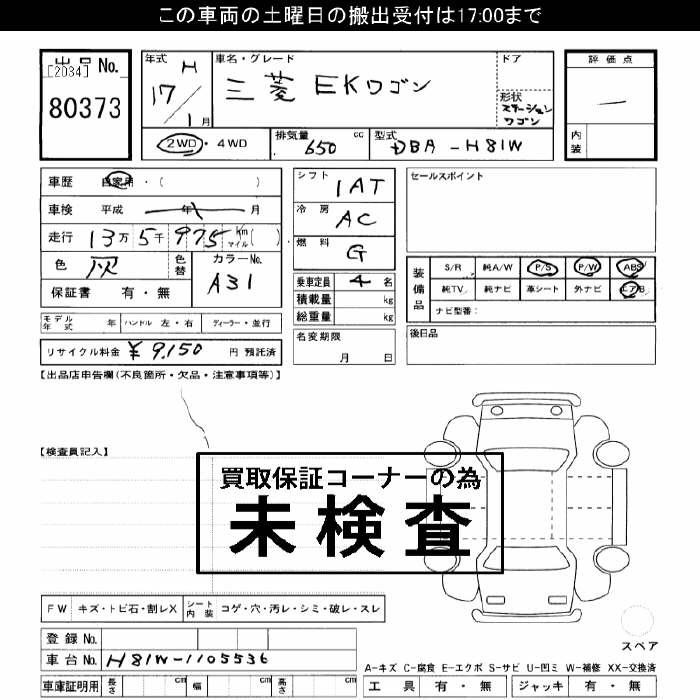 この車両の土曜日の搬出受付は17:00まで
出品 No.
[2034]
80373
年式 H
17/1月
車名・グレード
三菱 EKワゴン
ドア
形状
ステーション
ワゴン
評価点
―
内装
2WD・4WD
排気量 650 cc
型式 DBA-H81W
車歴 自家用・( )
車検 平成 年 月
走行 13万5千975 km マイル( )
色 灰
色替
カラーNo.
A31
保証書 有・無
シフト
1AT
冷房
AC
燃料
G
乗車定員 4 名
積載量 kg
総重量 kg
セールスポイント
装備品
S/R 純A/W P/S P/W ABS
純TV 純ナビ 革シート 外ナビ エアB
ナビ型番:
モデル年式 年 ハンドル 左・右 ディーラー・並行
リサイクル料金 ¥9,150 円 預託済
名変期限
月 日
後日品
【出品店申告欄(不良箇所・欠品・注意事項等)】
【検査員記入】
買取保証コーナーの為
未検査
FW キズ・トビ石・割レX シート内装 コゲ・穴・汚レ・シミ・破レ・スレ
スペア
登録No.
車台No. H81W-1105536
車庫証明用 長さ cm 幅 cm 高さ cm
A-キズ C-腐食 E-エクボ S-サビ U-凹ミ W-補修 XX-交換済
工具 有・無 ジャッキ 有・無